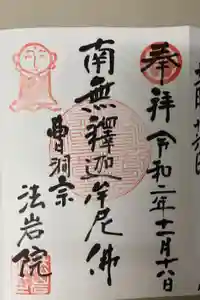 奉拝 令和二年十一月十八日
南無釋迦牟尼佛
曹洞宗
法岩院